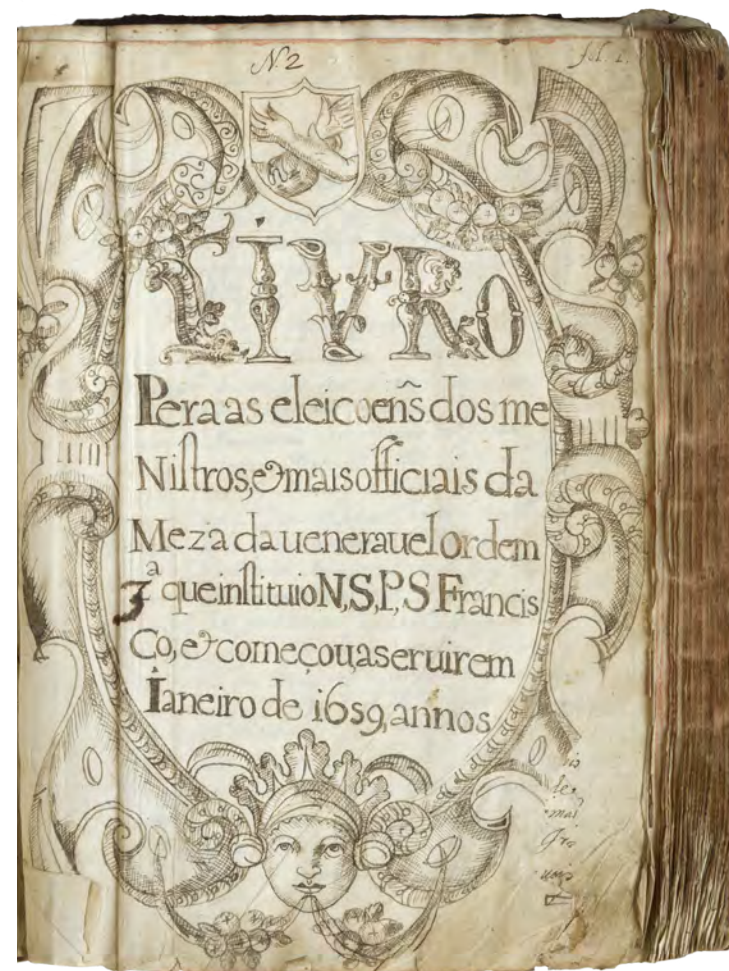 N. 2
fol. 1.
LIVRO
Pera as eleicoens̃ dos me
Nistros, & mais officiais da
Meza da ueneravel ordem
3ª que instituio N, S, P, S Francis
Co, & começou a seruir em
Ianeiro de 1659, annos
mai